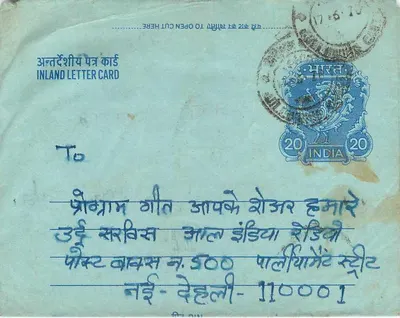 यहां काट कर खोलिए TO OPEN CUT HERE
अन्तर्देशीय पत्र कार्ड
INLAND LETTER CARD
भारत
20 20
INDIA
To
प्रोग्राम गीत आपके शेअर हमारे
उर्दू सरविस आल इंडिया रेडियो
पोस्ट बाक्स न. 500 पार्लीयामैंट स्ट्रीट
नई-देहली-110001